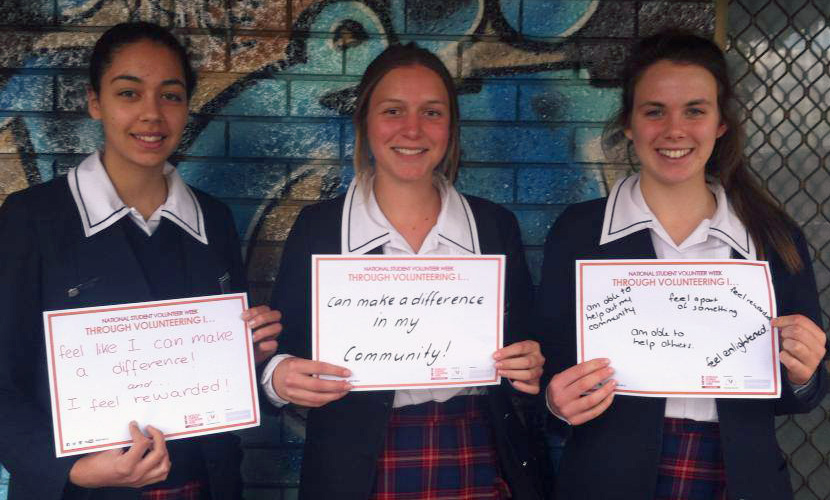 NATIONAL STUDENT VOLUNTEER WEEK
THROUGH VOLUNTEERING I...
feel like I can make
a difference!
and...
I feel rewarded!
NATIONAL STUDENT VOLUNTEER WEEK
THROUGH VOLUNTEERING I...
can make a difference
in my
Community!
NATIONAL STUDENT VOLUNTEER WEEK
THROUGH VOLUNTEERING I...
am able to
help out my
community
feel a part
of something
feel rewarded
am able to
help others.
feel enlightened.